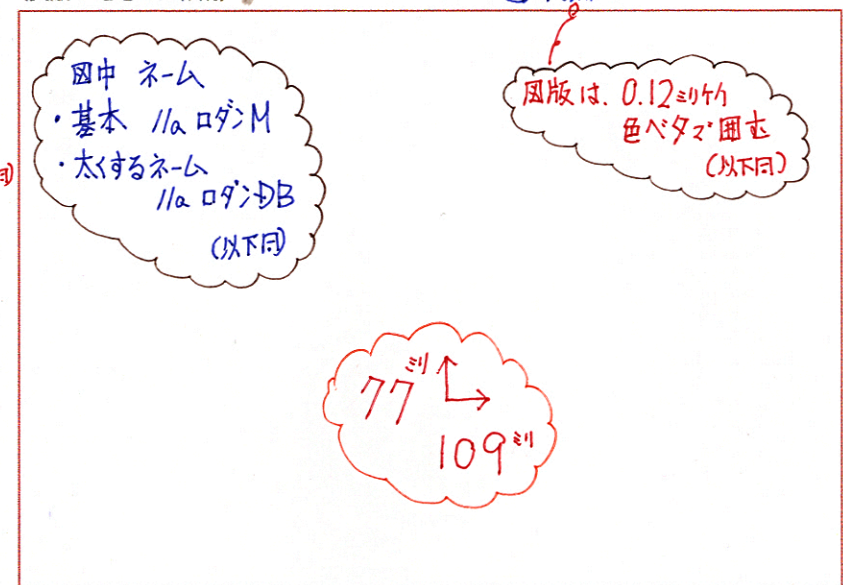 図中 ネーム
・基本 11a ロダンM
・太くするネーム
11a ロダンDB
(以下同)
図版は、0.12ミリケイ
色ベタで囲む
(以下同)
77ミリ
109ミリ